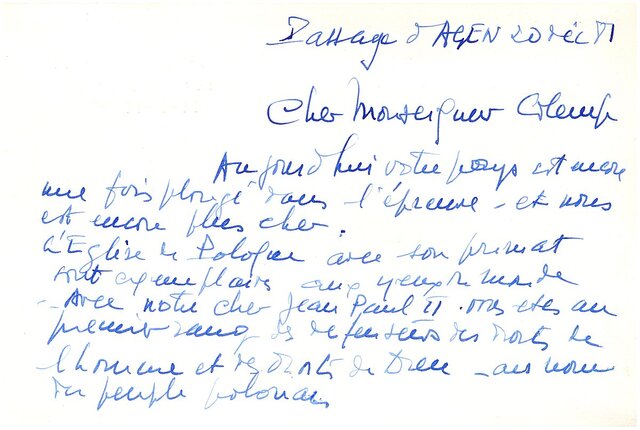 Passage d'AGEN 20 déc 81
Cher Monseigneur Glemp
Aujourd'hui votre pays est encore
une fois plongé dans l'épreuve - et nous
est encore plus cher.
L'Eglise de Pologne avec son primat
sont exemplaires aux yeux du monde
- Avec notre cher Jean Paul II. vous etes au
premier rang des defenseurs des droits de
l'homme et des droits de Dieu - au nom
du peuple polonais